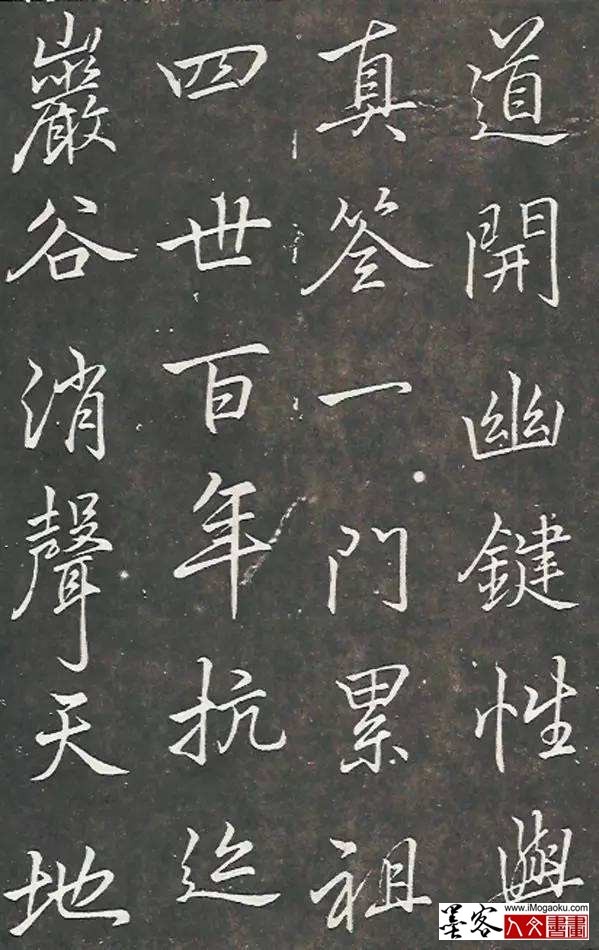 道開幽鍵性與
真筌一門累祖
四世百年抗迹
巖谷消聲天地
墨客 www.iMogaoku.com
人文書畫